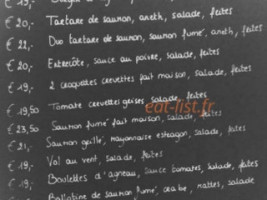 € 20,- Tartare de saumon, aneth, salade, frites
€ 22,- Duo tartare de saumon, saumon fumé, aneth, frites
€ 20,- Entrecôte, sauce au poivre, salade, frites
€ 19,- 2 croquettes crevettes fait maison, salade, frites
€ 19,50 Tomate crevettes grises, salade, frites
€ 23,50 Saumon fumé fait maison, salade, frites
€ 21,- Saumon grillé, mayonnaise estragon, salade, frites
€ 19,- Vol au vent, salade, frites
€ 19,- Boulettes d'agneau, sauce tomates, salade, frites
Ballotine de saumon fumé, crabe, salade
eat-list.fr